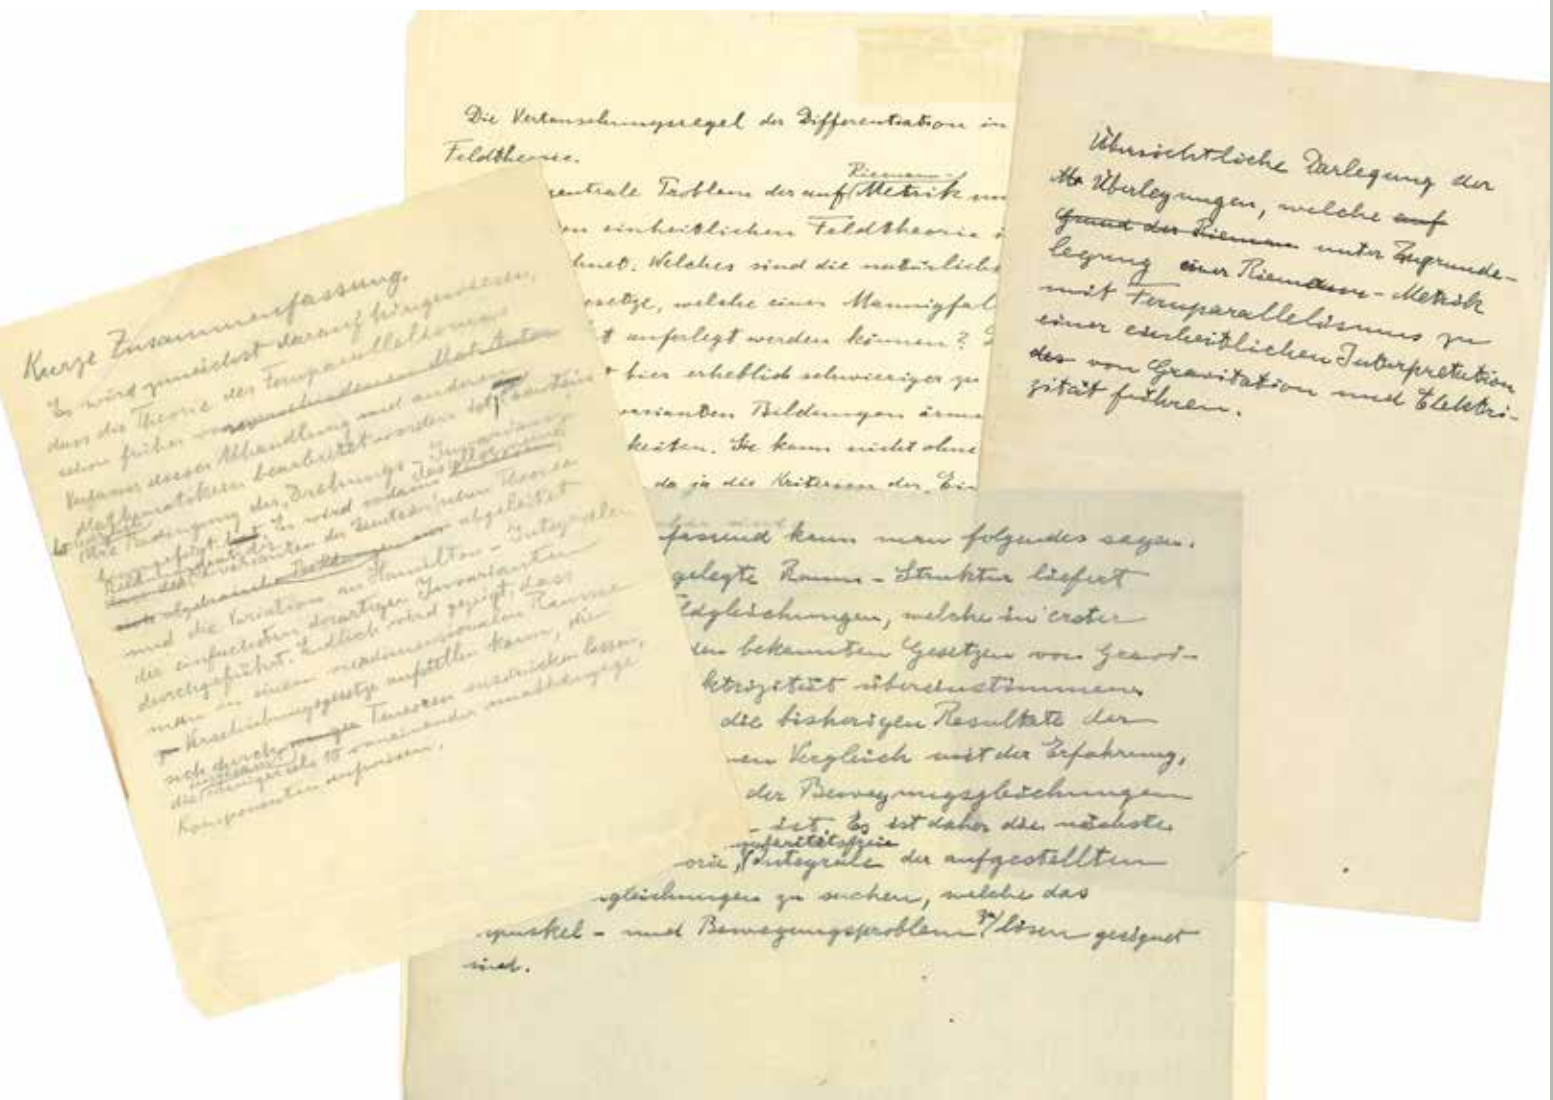 Kurze Zusammenfassung.
Es wird zunächst darauf hingewiesen,
dass die Theorie des Fernparallelismus
schon früher
Verfasser dieser Abhandlung und anderen
Mathematikern bearbeitet worden ist,
die Bedingung der Drehungs-Invarianz
hinzugefügt hat. Es wird sodann das allgemeine
Bildungsgesetz der
Invarianten der Einstein'schen Theorie
abgeleitet
und die Variation am Hamilton-Integral
der einfachsten derartigen Invarianten
durchgeführt. Endlich wird gezeigt, dass
man in einem n-dimensionalen Raume
Verschiebungsgesetze aufstellen kann, die
sich durch Tensoren ausdrücken lassen,
die weniger als voneinander unabhängige
Komponenten aufweisen.
Die Vertauschungsregel der Differentiation in
Feldtheorie.
zentrale Problem der auf Riemann-Metrik
en einheitlichen Feldtheorie
hnet. Welches sind die natürlichs
esetze, welche einer Mannigfal
t auferlegt werden können?
hier erheblich schwieriger zu
varianten Bildungen
keiten. Sie kann nicht ohne
da ja die Kriterien der Ein
Übersichtliche Darlegung der
Überlegungen, welche auf
Grund der Riemann unter Zugrunde-
legung einer Riemann-Metrik
mit Fernparallelismus zu
einer einheitlichen Interpretation
des von Gravitation und Elektri-
zität führen.
fassend kann man folgendes sagen.
gelegte Raum-Struktur liefert
ldgleichungen, welche in erster
den bekannten Gesetzen von Gravi-
ktrizität übereinstimmen
die bisherigen Resultate der
nen Vergleich mit der Erfahrung,
der Bewegungsgleichungen
ist. Es ist daher die nächste
orie, singularitätsfreie Integrale der aufgestellten
gleichungen zu suchen, welche das
rpuskel- und Bewegungsproblem zu lösen geeignet
sind.